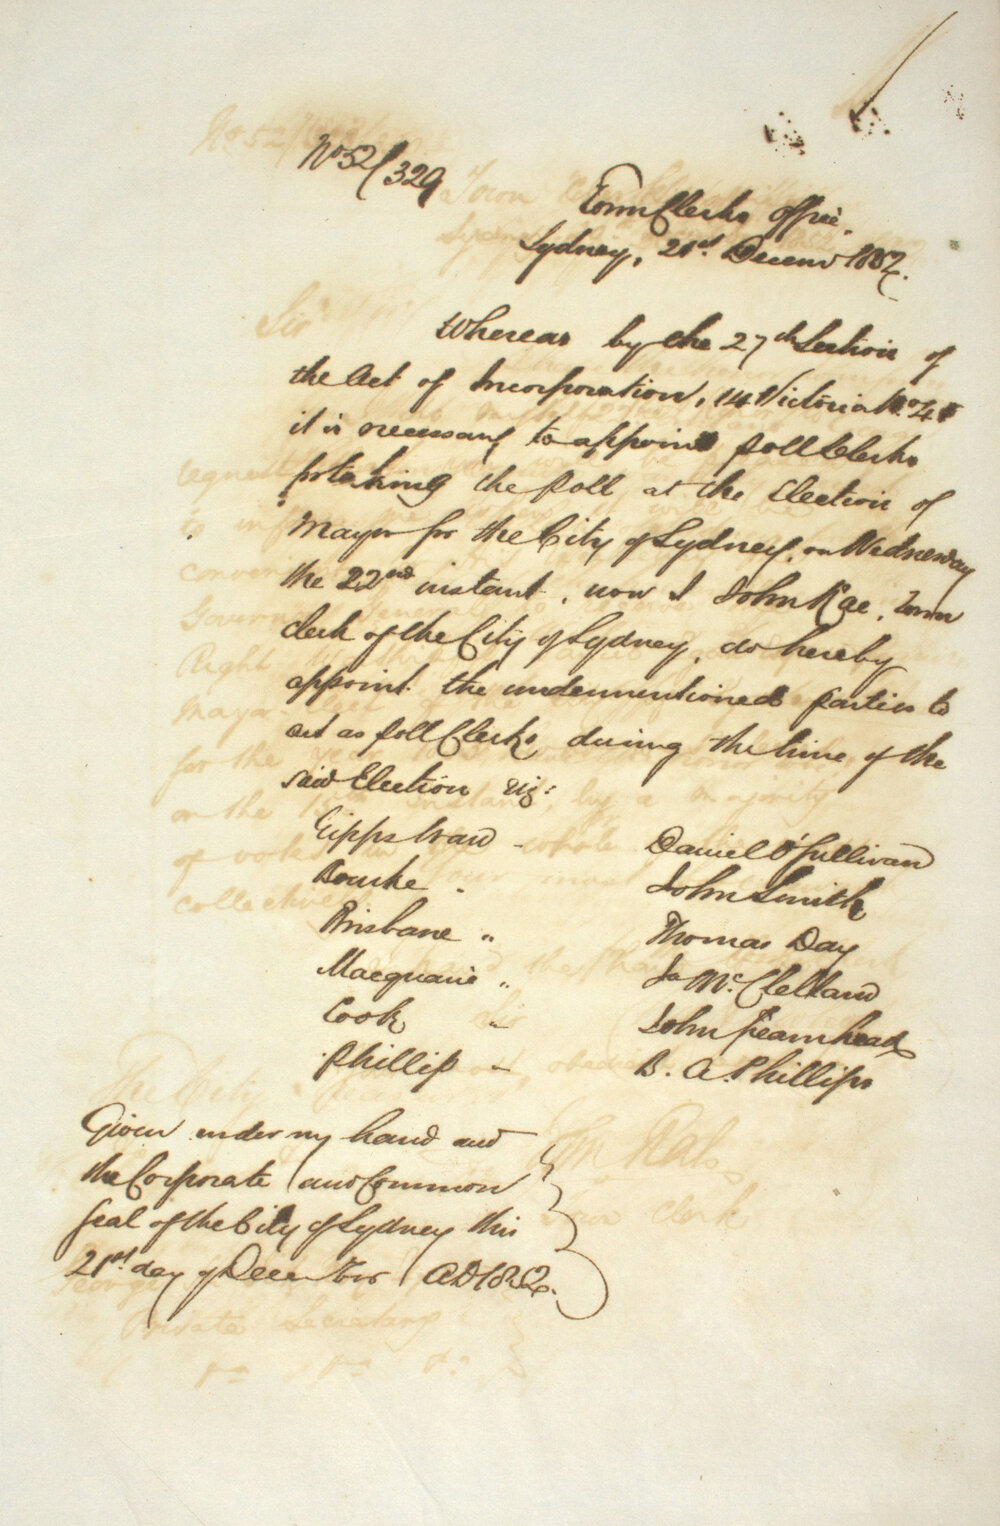 No 52/329
Town Clerks Office.
Sydney, 21st. Decemr 1852.
Whereas by the 27th Section of
the Act of Incorporation, 14 Victoria No. 41
it is necessary to appoint Poll Clerks
for taking the Poll at the Election of
Mayor for the City of Sydney, on Wednesday
the 22nd instant, now I John Rae, Town
clerk of the City of Sydney, do hereby
appoint the undermentioned parties to
act as Poll Clerks during the time of the
said Election viz:
Gipps Ward - Daniel O'Sullivan
Bourke " John Smith
Brisbane " Thomas Day
Macquarie " Ja McClelland
Cook " John
Phillip " B. A. Phillips
Given under my hand and
the Corporate and Common
Seal of the City of Sydney this
21st day of December AD 1852.